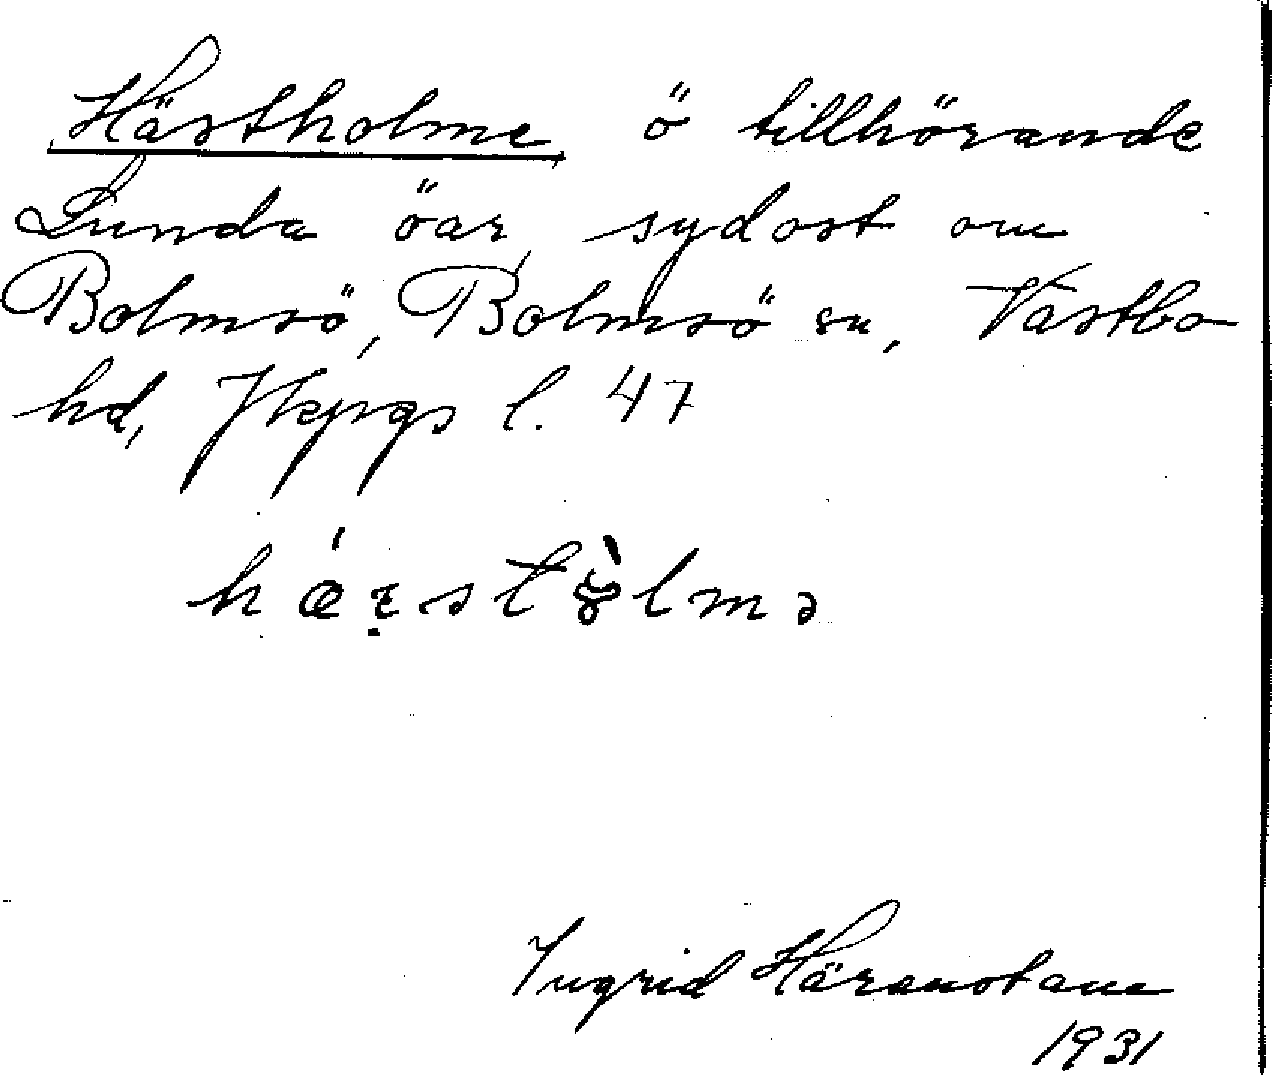 Hästholme ö tillhörande
Lunda öar, sydost om
Bolmsö, Bolmsö sn, Västbo
hd, Jkpgs l. 47
Ingrid
1931